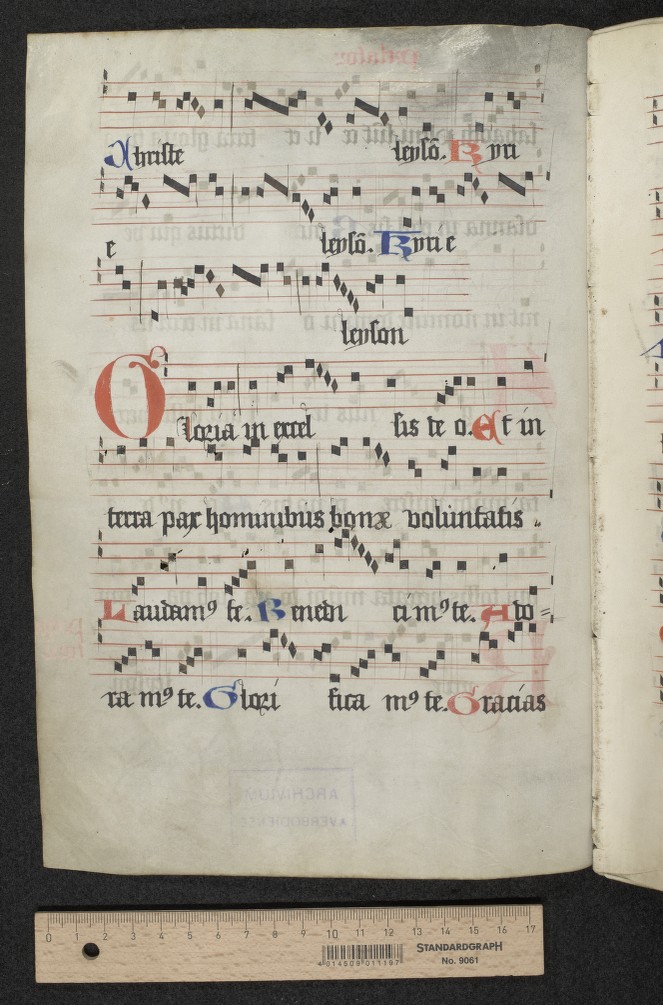 Christe leysō. Kyri
e leysō. Kyrie
leyson
Gloria in excel sis de o. Et in
terra pax hominibus bonæ voluntatis
Laudamꝰ te. Benedi ci mꝰ te. Ado=
ra mꝰ te. Glori fica mꝰ te. Gracias
ARCHIVUM
AVERBODIENSE
0 1 2 3 4 5 6 7 8 9 10 11 12 13 14 15 16 17
4 014509 011197
STANDARDGRAPH
No. 9061